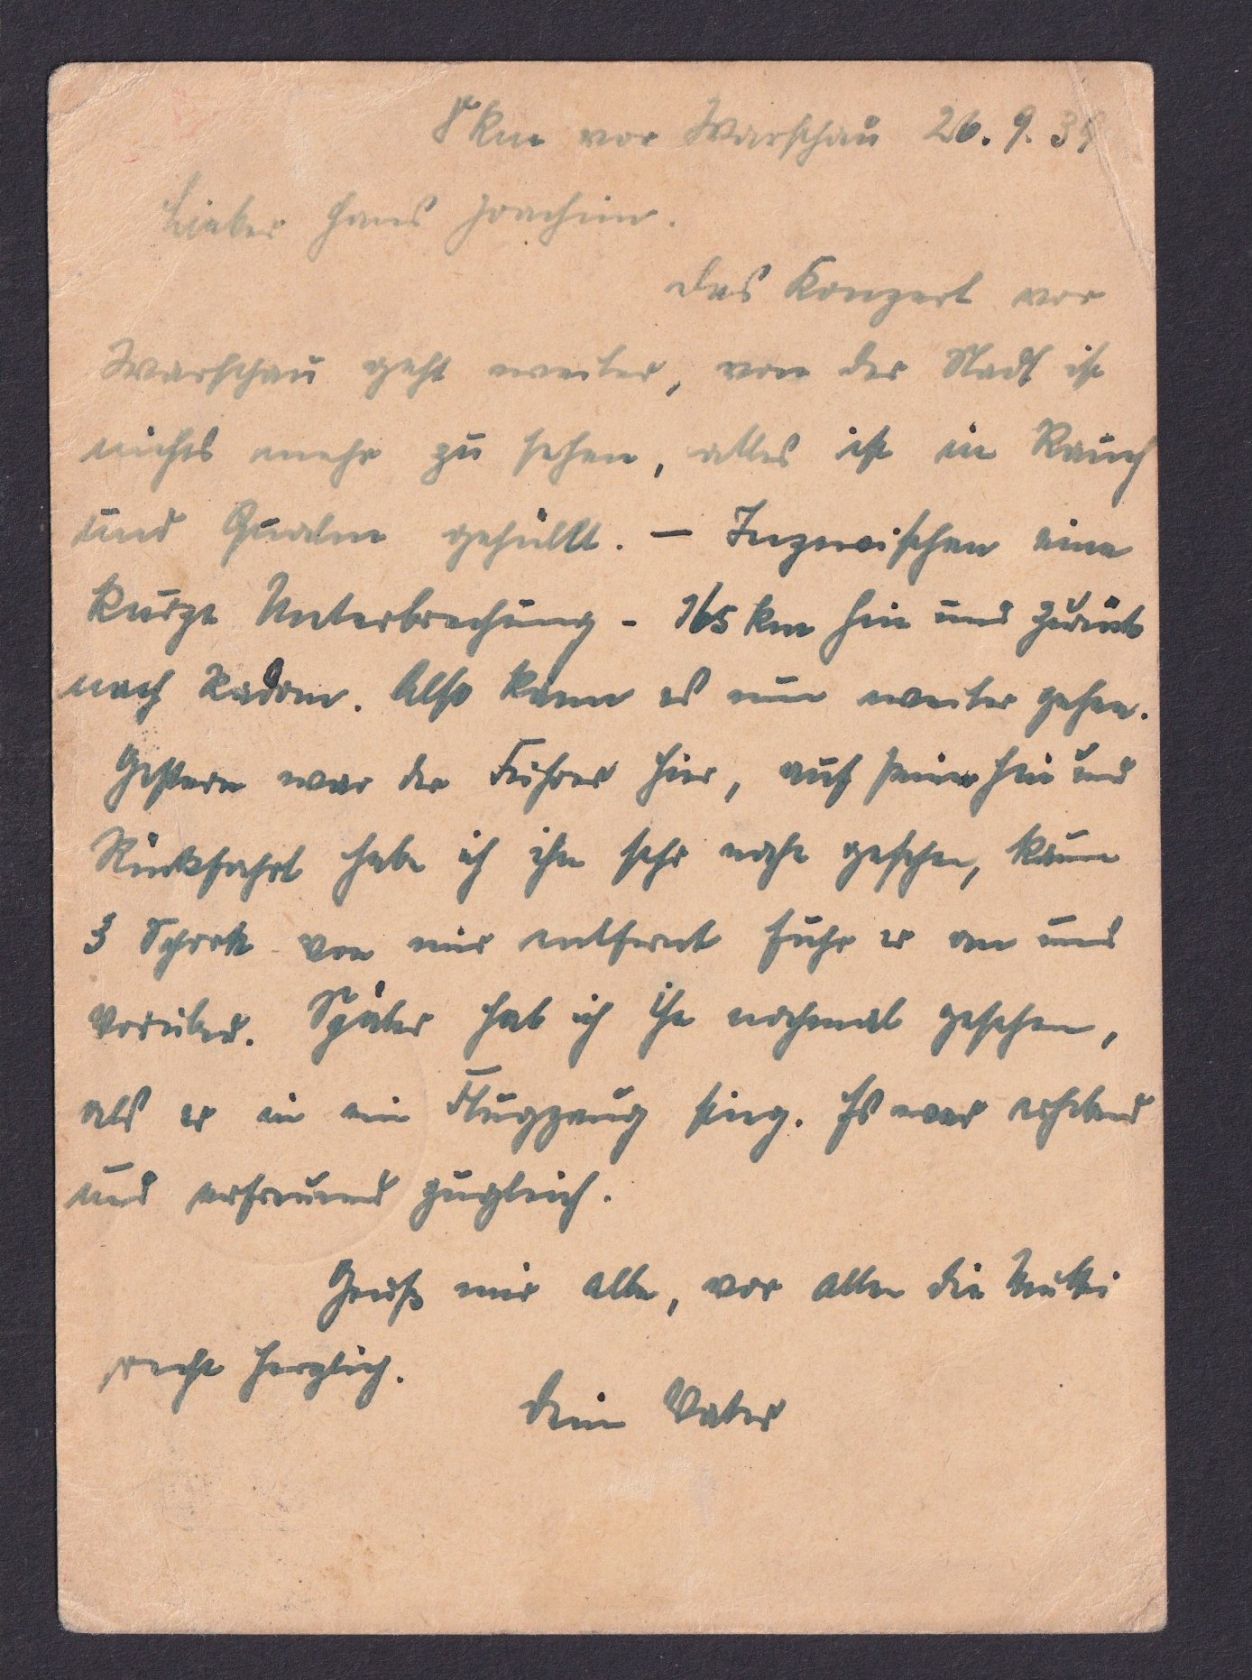 8 km vor Warschau 26.9.39
Lieber Hans Joachim.
Das Konzert vor
Warschau geht weiter, von der Stadt ist
nichts mehr zu sehen, alles ist in Rauch
und Qualm gehüllt. – Inzwischen eine
kurze Unterbrechung – 165 km hin und zurück
nach Radom. Also kann es nun weiter gehen.
Gestern war der Führer hier, auf seiner Hin und
Rückfahrt habe ich ihn sehr nahe gesehen, kaum
3 Schritt von mir entfernt fuhr er an uns
vorüber. Später hab ich ihn nochmal gesehen,
als er in ein Flugzeug stieg. Es war erhebend
und erfreuend zugleich.
Grüß mir alle, vor allem die Mutti
recht herzlich.
Dein Vater